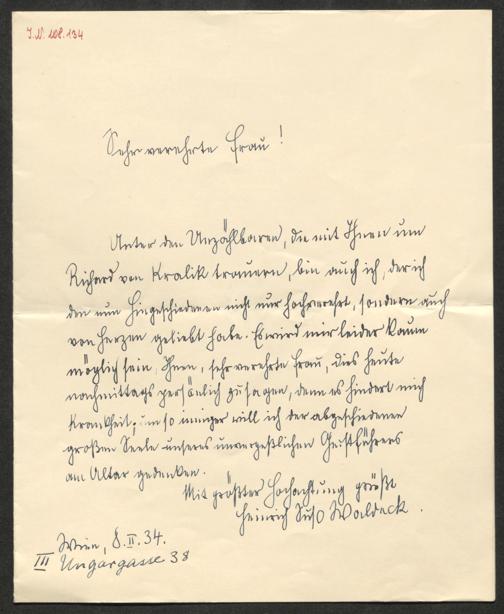 J.N. 108.134
Sehr verehrte Frau!
Unter den Unzählbaren, die mit Ihnen um
Richard von Kralik trauern, bin auch ich, der ich
den nun Hingeschiedenen nicht nur hochverehrt, sondern auch
von Herzen geliebt habe. Es wird mir leider kaum
möglich sein, Ihnen, sehr verehrte Frau, dies heute
nachmittags persönlich zu sagen, denn es hindert mich
Krankheit; umso inniger will ich der abgeschiedenen
großen Seele unseres unvergeßlichen Geistführers
am Altar gedenken.
Mit größter Hochachtung grüßt
Heinrich Suso Waldeck.
Wien, 8.II.34.
III Ungargasse 38